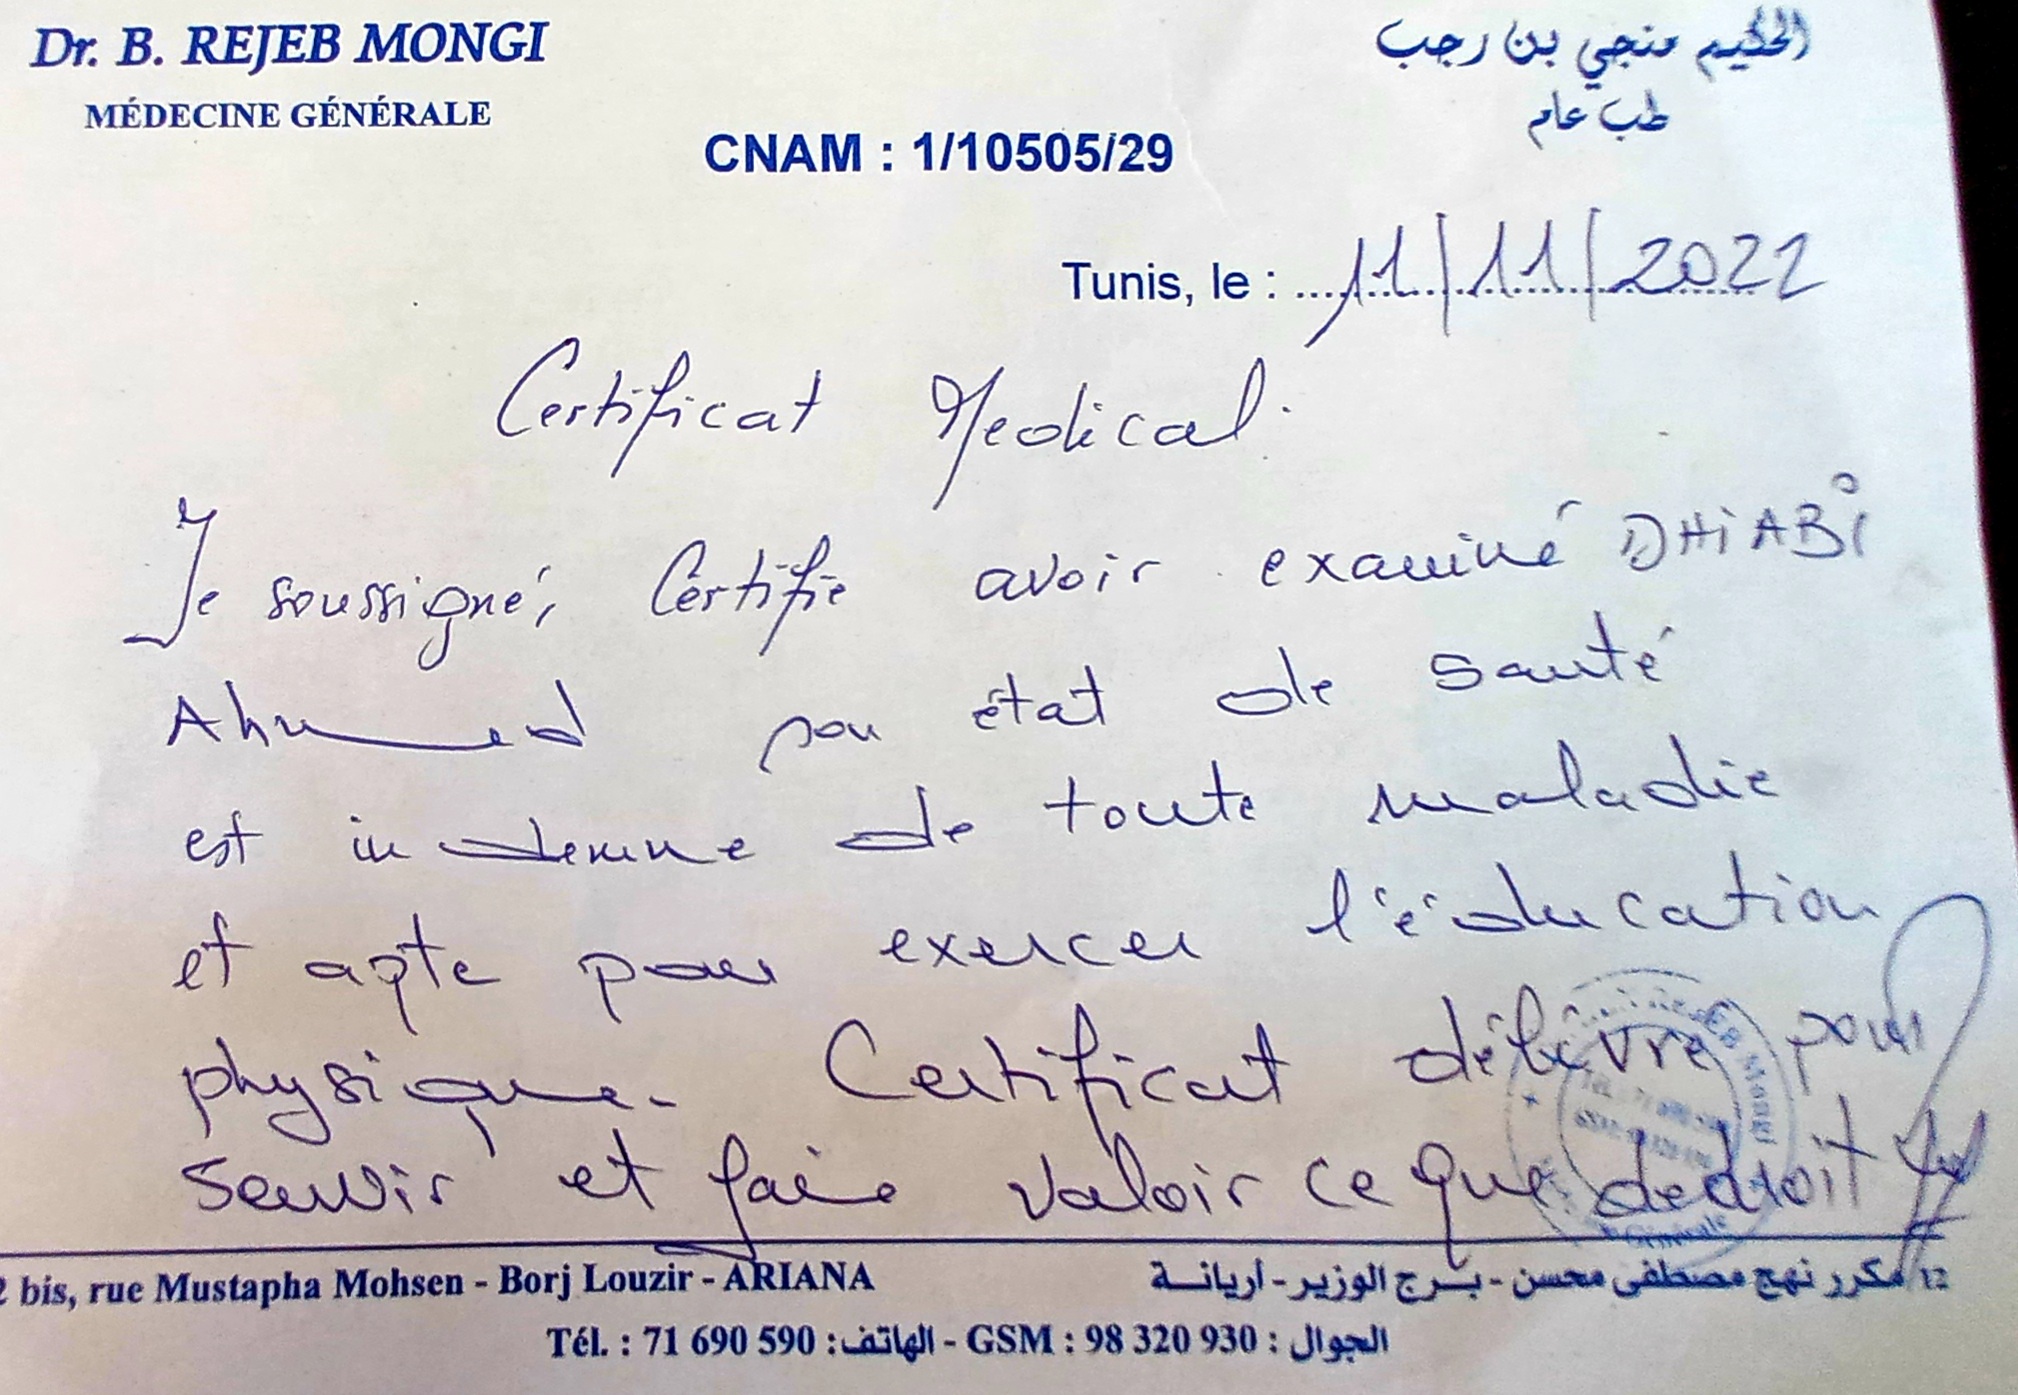 Dr. B. REJEB MONGI
الحكيم منجي بن رجب
MÉDECINE GÉNÉRALE
طب عام
CNAM : 1/10505/29
Tunis, le : 11/11/2022
Certificat Medical.
Je soussigné, Certifie avoir examiné DHiABi
Ahmed son état de santé
est indemne de toute maladie
et apte pour exercer l'éducation
physique. Certificat délivré pour
servir et faire valoir ce que de droit
2 bis, rue Mustapha Mohsen - Borj Louzir - ARIANA
12 مكرر نهج مصطفى محسن - برج الوزير - اريانة
Tél. : 71 690 590 : الهاتف - GSM : 98 320 930 : الجوال
Mongi
Générale